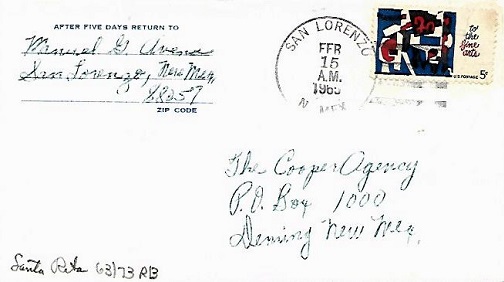 AFTER FIVE DAYS RETURN TO
Manuel G
San Lorenzo, New Mex,
88257
ZIP CODE
SAN LORENZO
FEB
15
A.M.
1965
N. MEX.
to
the
fine
arts
U.S. POSTAGE 5¢
The Cooper Agency
P.O. Box 1000
Deming New Mex.
Santa Rita 63/73 RB